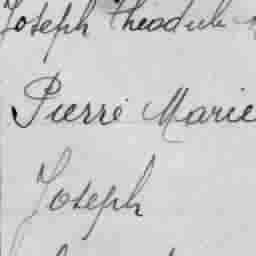 Joseph Théodule
Pierre Marie
Joseph